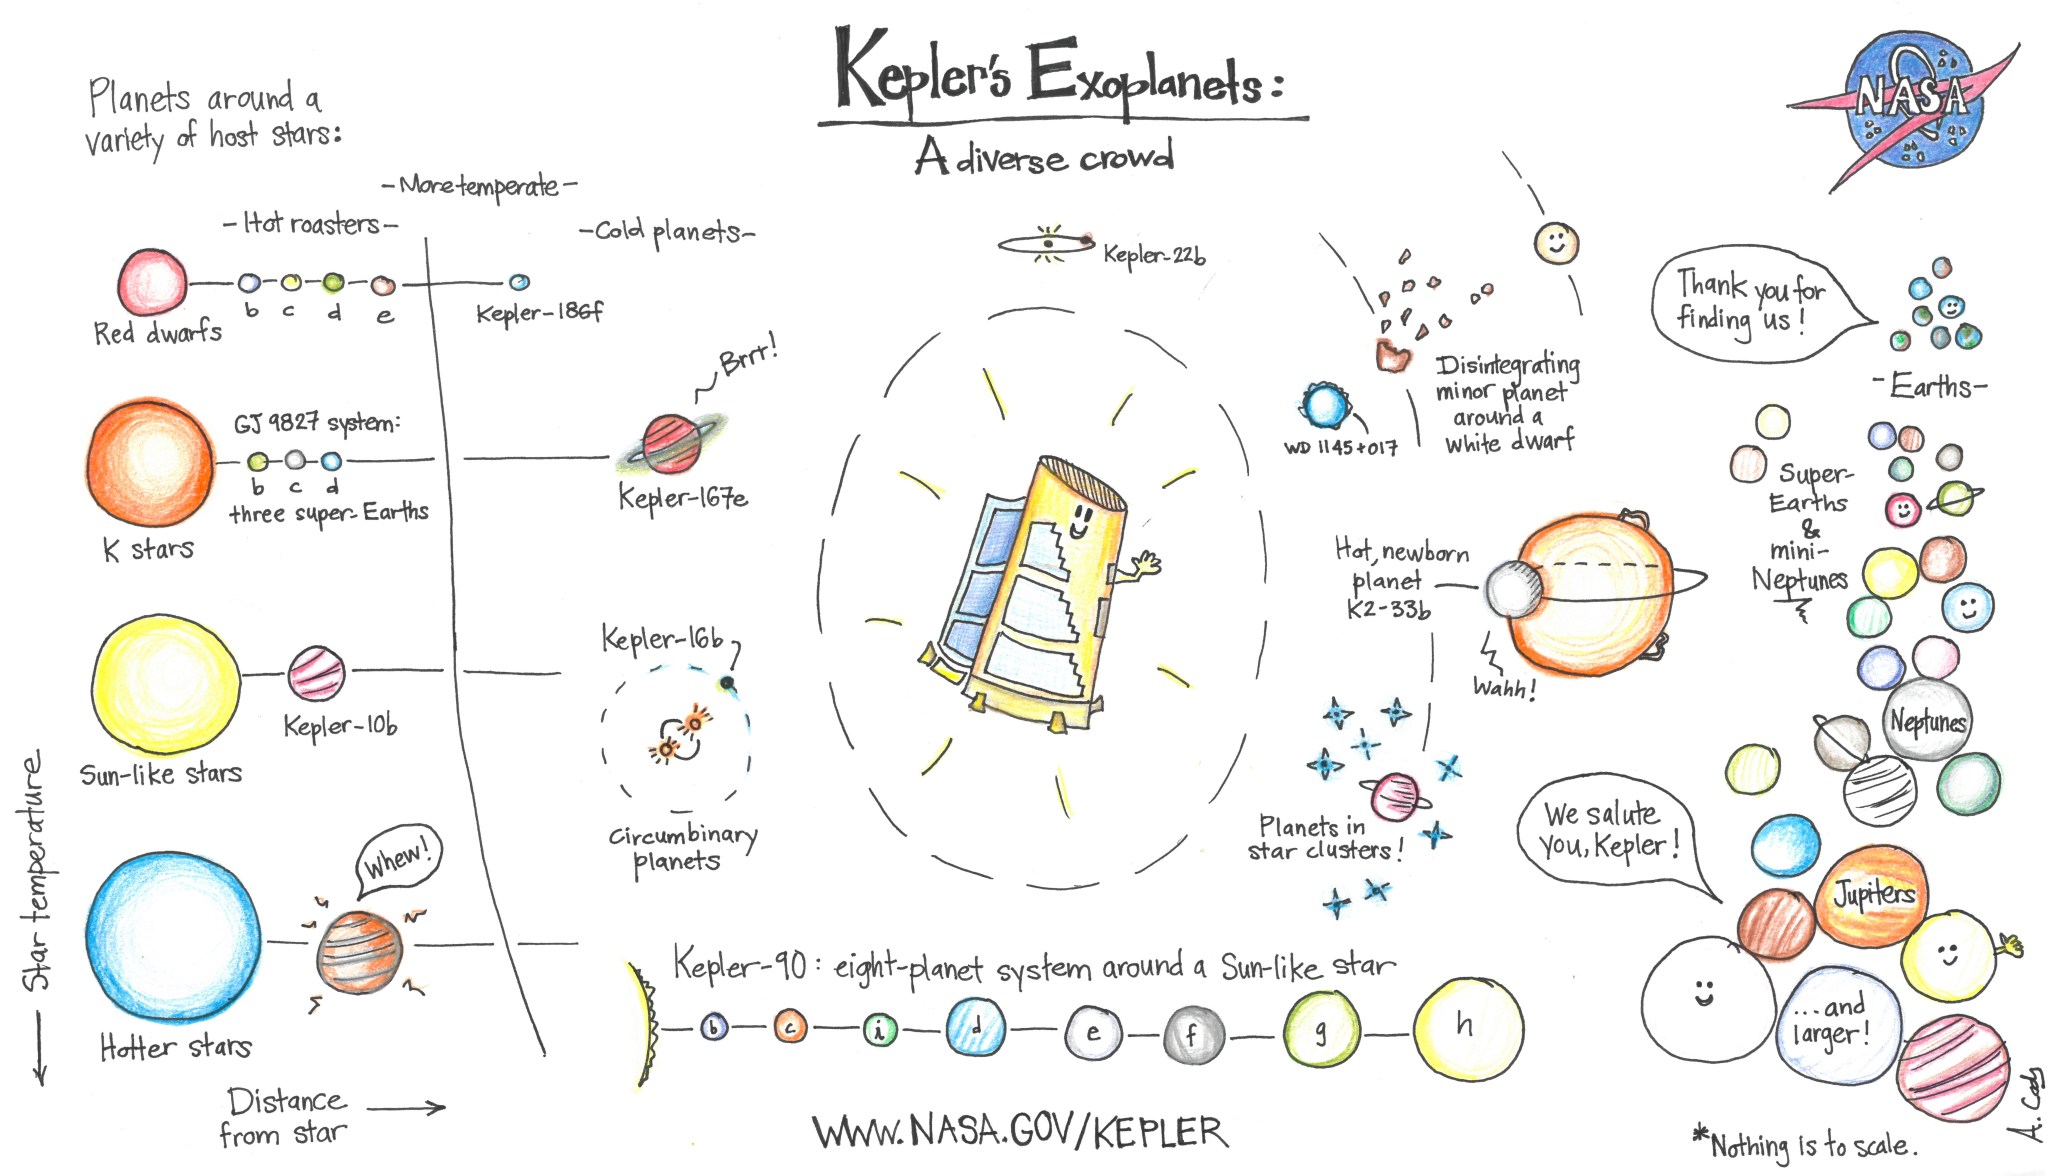 Kepler's Exoplanets:
A diverse crowd
NASA
Planets around a
variety of host stars:
-More temperate-
-Hot roasters-
-Cold planets-
b c d e
Kepler-186f
Red dwarfs
Brrr!
GJ 9827 system:
b c d
three super-Earths
Kepler-167e
K stars
Kepler-16b
Kepler-10b
Sun-like stars
circumbinary
planets
Whew!
Hotter stars
Star temperature
Distance
from star
Kepler-22b
Disintegrating
minor planet
around a
white dwarf
WD 1145+017
Hot, newborn
planet
K2-33b
Wahh!
Planets in
star clusters!
Kepler-90: eight-planet system around a Sun-like star
b c i d e f g h
WWW.NASA.GOV/KEPLER
Thank you for
finding us!
-Earths-
Super-
Earths
&
mini-
Neptunes
Neptunes
We salute
you, Kepler!
Jupiters
...and
larger!
*Nothing is to scale.
A. Cady